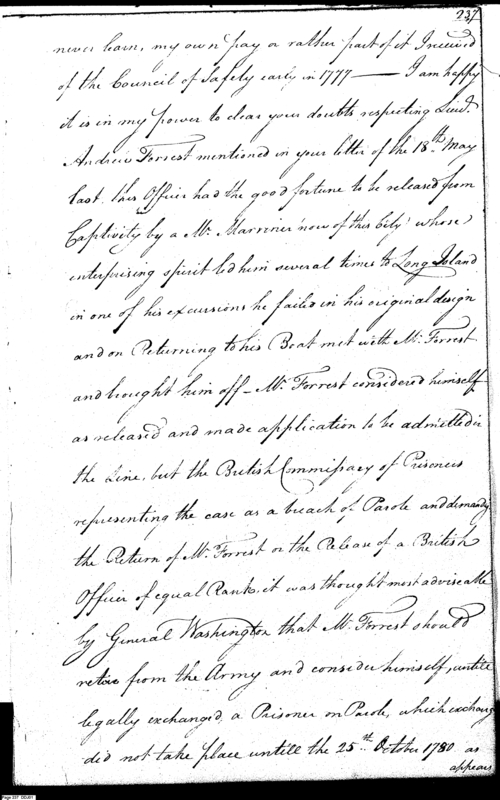 237
never learn, my own pay or rather part of it I received
of the Council of Safety early in 1777 — I am happy
it is in my power to clear your doubts respecting Lieut.
Andrew Forrest mentioned in your letter of the 18th. May
last. this Officer had the good fortune to be released from
Captivity by a Mr. Marriner now of this City whose
enterprising spirit led him several times to Long Island
in one of his excursions he failed in his original design
and on Returning to his Boat met with Mr. Forrest
and brought him off - Mr. Forrest considered himself
as released and made application to be admitted in
the Line, but the British Commissary of Prisoners
representing the case as a breach of Parole and demandg
the Return of Mr. Forrest or the Release of a British
Officer of equal Rank, it was thought most adviseable
by General Washington that Mr. Forrest should
retire from the Army and consider himself, untill
legally exchanged, a Prisoner on Parole, which exchange
did not take place untill the 25th. October 1780 as
appears
Page 237